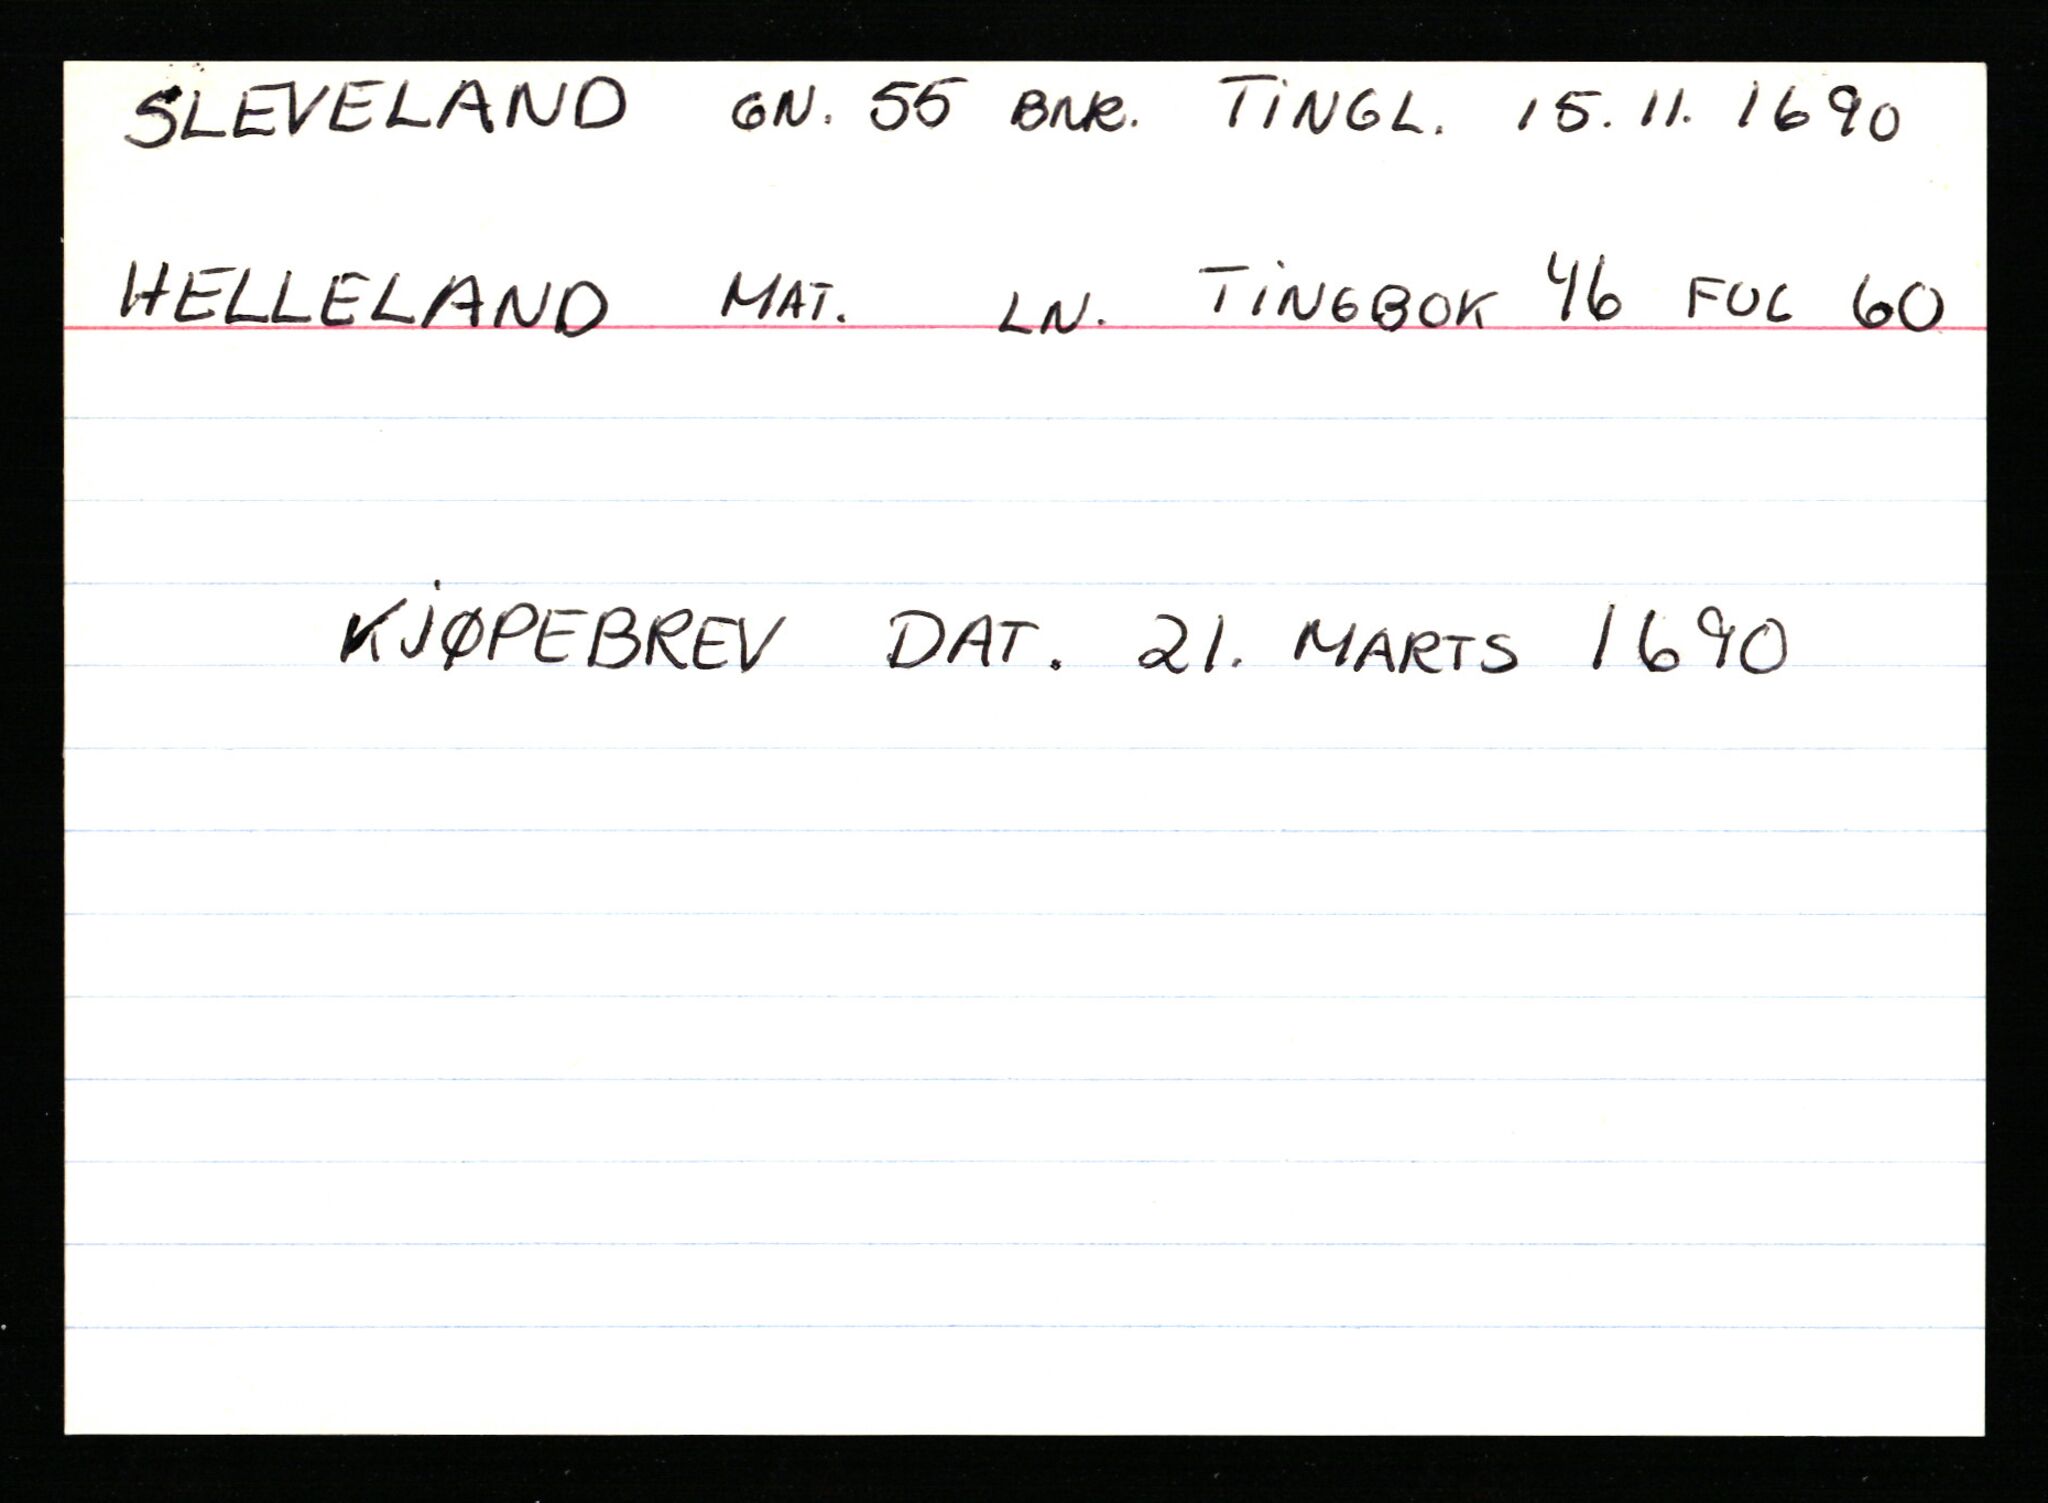 SLEVELAND GN. 55 BNR. TINGL. 15.11.1690
HELLELAND MAT. LN. TINGBOK 46 FOL 60
KJØPEBREV DAT. 21. MARTS 1690